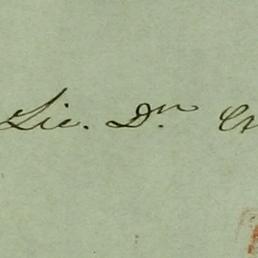 Lic. Dn.